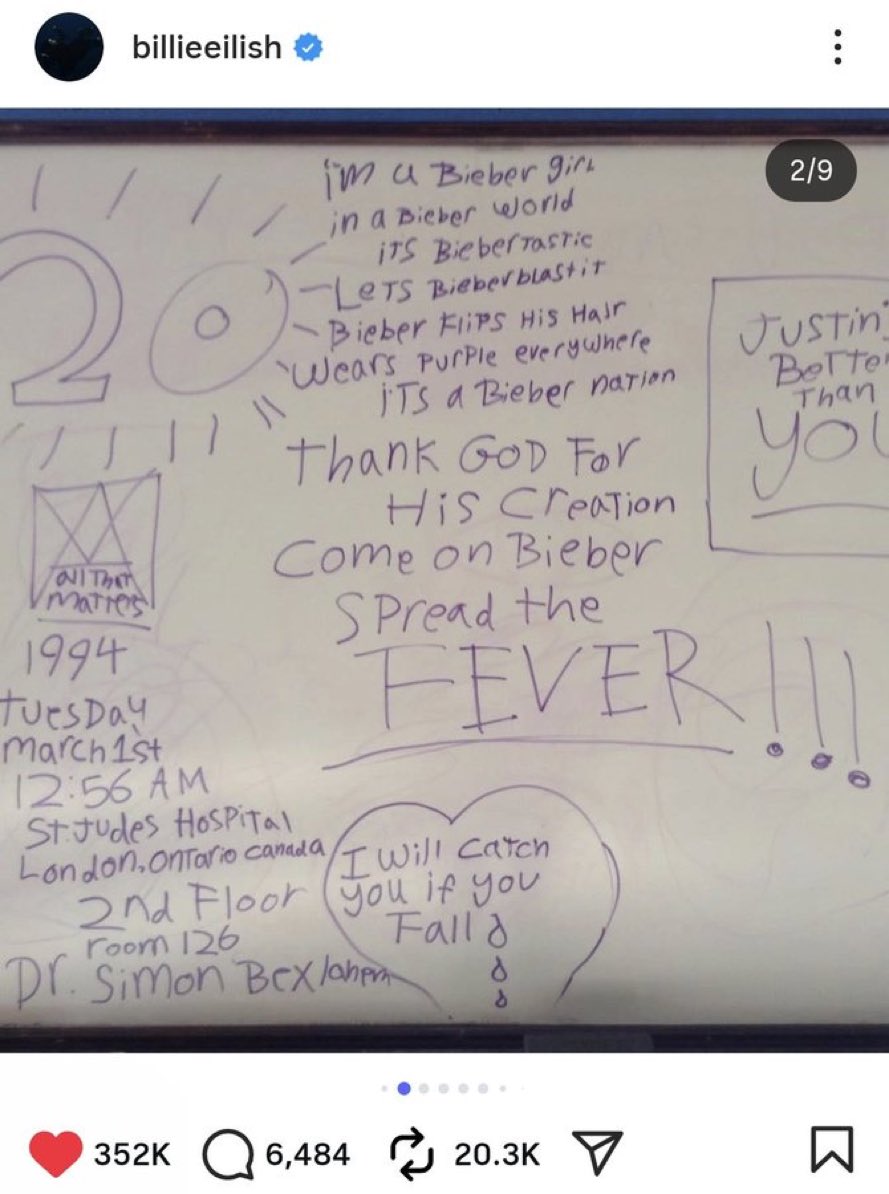 billieeilish
2/9
20
i'm a Bieber girl
in a Bieber world
iTS BieberTasTic
LeTS Bieberblastit
Bieber Flips His Hair
Wears Purple everywhere
iTS a Bieber nation
Thank GOD For
His Creation
Come on Bieber
Spread the
FEVER!!!
Justin
Better
Than
YOU
all That
matters
1994
Tuesday
march 1st
12:56 AM
St. Judes Hospital
London, Ontario Canada
2nd Floor
room 126
Dr. Simon
I will catch
you if you
Fall
352K
6,484
20.3K